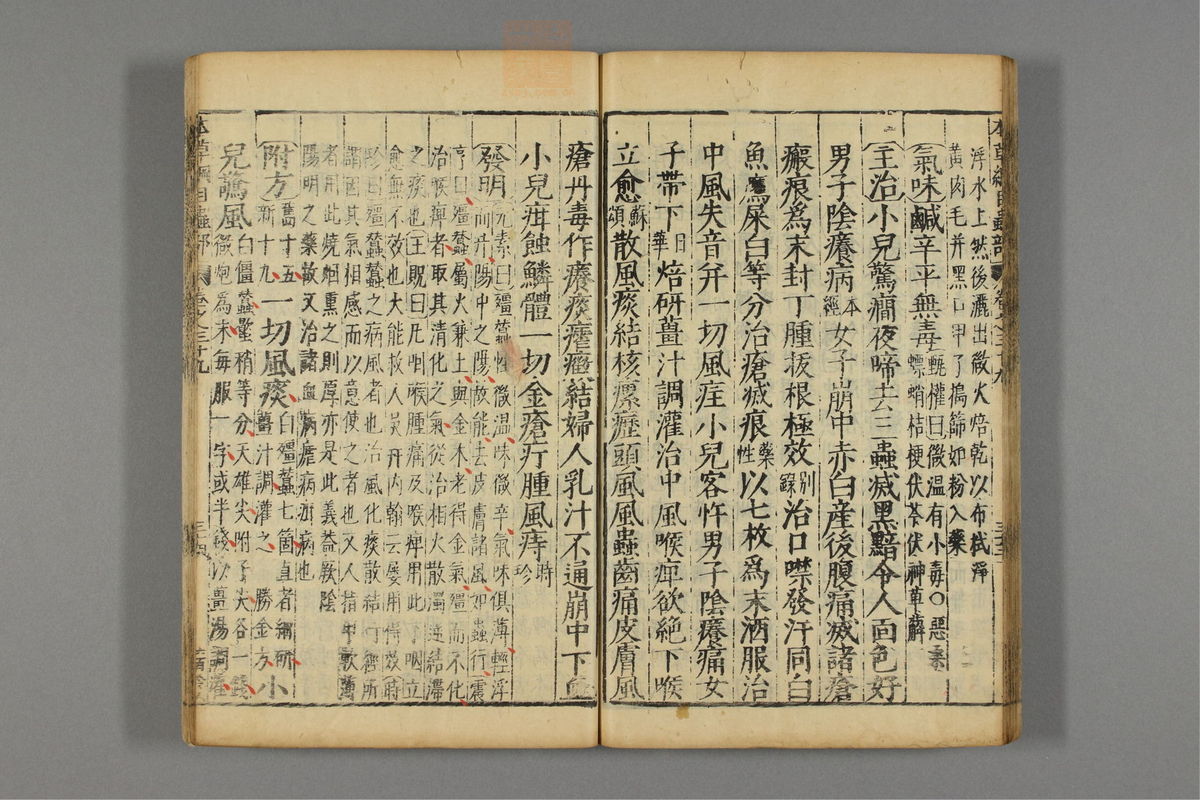 本草綱目蟲部 卷之三十九
浮水上然後瀝出微火焙乾以布拭淨
黃肉毛并黑口甲了搗篩如粉入藥
氣味鹹辛平無毒甄權曰微溫有小毒〇惡桑
螵蛸桔梗伏苓伏神萆薢
主治小兒驚癇夜啼去三蟲滅黑䵟令人面色好
男子陰癢病本經女子崩中赤白産後腹痛滅諸瘡
瘢痕爲末封丁腫拔根極效别錄治口噤發汗同白
魚鷹屎白等分治瘡滅痕藥性以七枚爲末酒服治
中風失音并一切風疰小兒客忤男子陰癢痛女
子帶下日華焙研薑汁調灌治中風喉痺欲絶下喉
立愈蘇頌散風痰結核瘰癧頭風風蟲齒痛皮膚風
瘡丹毒作癢痰瘧癥結婦人乳汁不通崩中下血
小兒疳蝕鱗體一切金瘡疔腫風痔時珍
發明元素曰殭蠶性微溫味微辛氣味俱薄輕浮
而升陽中之陽故能去皮膚諸風如蟲行震
亨曰殭蠶屬火兼土與金木老得金氣殭而不化
治喉痺者取其清化之氣從治相火散濁逆結滯
之痰也王貺曰凡咽喉腫痛及喉痺用此下咽立
愈無不效也大能救人吳升內翰云屢用得效時
珍曰殭蠶蠶之病風者也治風化痰散結行經所
謂因其氣相感而以意使之者也又人指甲軟薄
者用此燒烟熏之則厚亦是此義葢厥陰
陽明之藥故又治諸血病瘧病疳病也
附方舊十五新十九一切風痰白殭蠶七箇直者細研
薑汁調灌之勝金方小
兒驚風白僵蠶蠍稍等分天雄尖附子尖各一錢
微炮爲末每服一字或半錢以薑湯調灌
本草綱目蟲部 卷之三十九